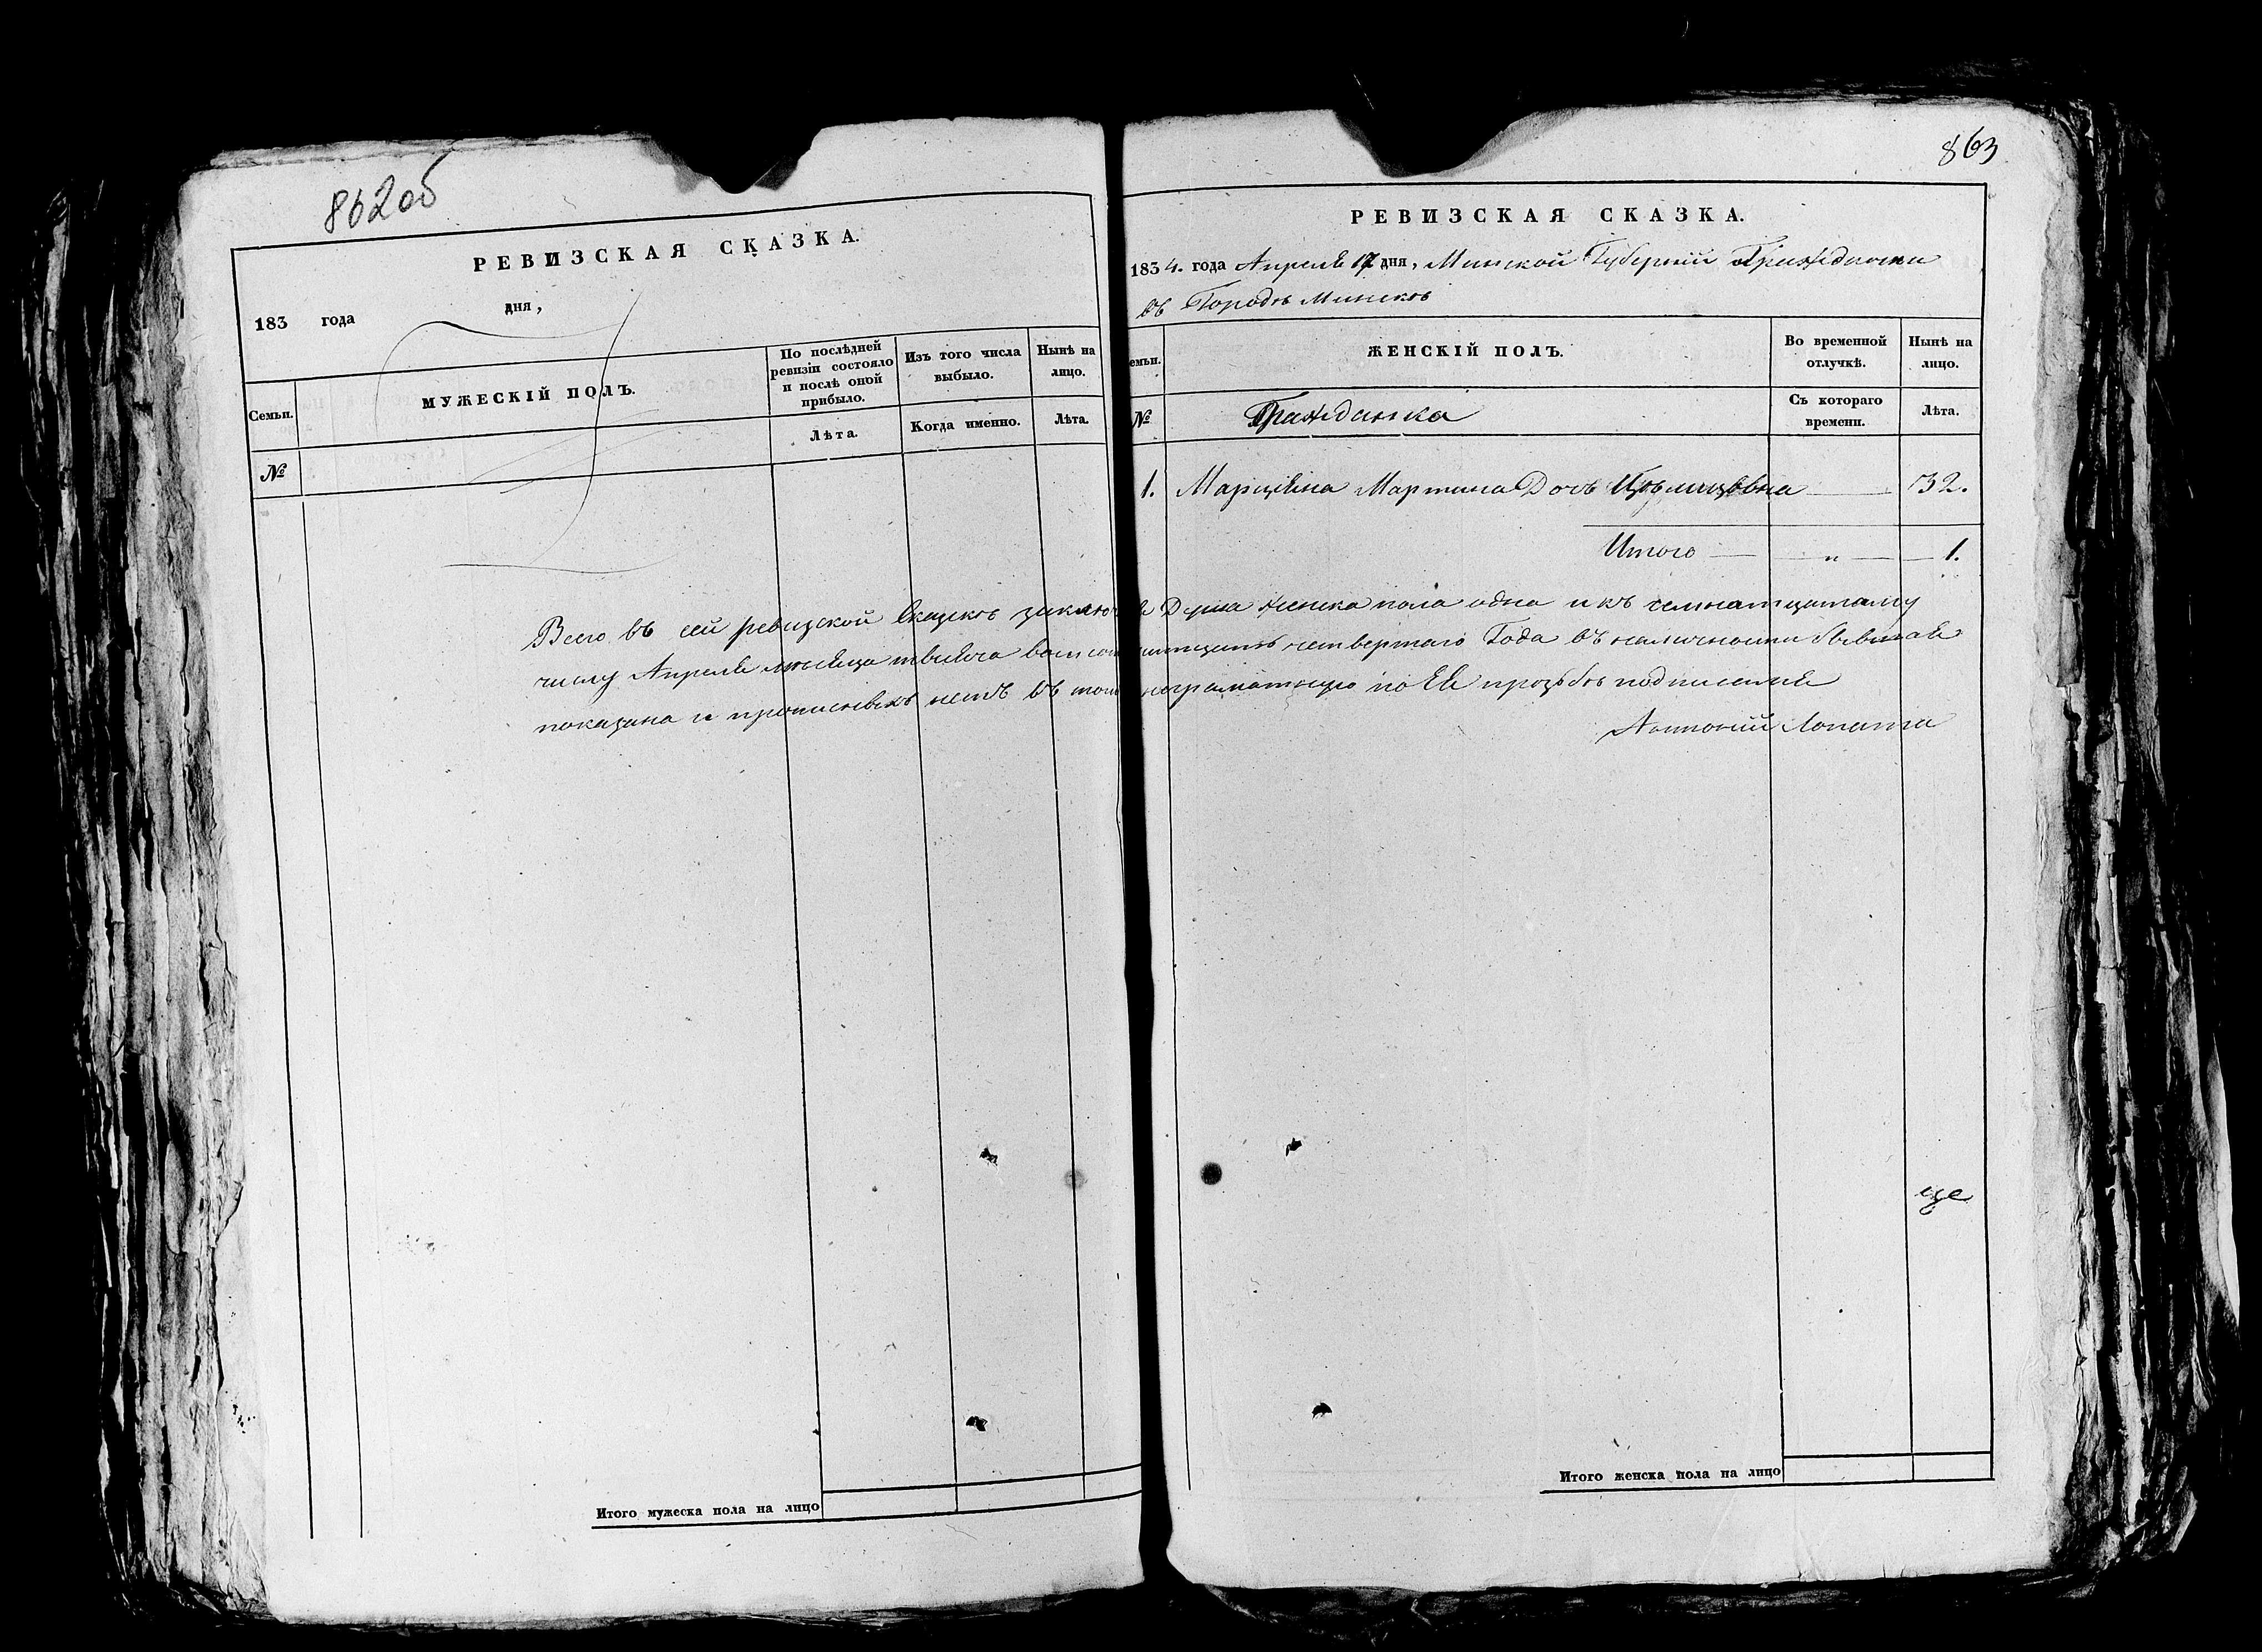 862об
РЕВИЗСКАЯ СКАЗКА.
183 года дня,
Семьи. МУЖЕСКІЙ ПОЛЪ. По послѣдней ревизіи состояло и послѣ оной прибыло. Изъ того числа выбыло. Нынѣ на лицо.
№ Лѣта. Когда именно. Лѣта.
Итого мужеска пола на лицо
863
РЕВИЗСКАЯ СКАЗКА.
1834. года Апреля 17 дня, Минской Губерніи Гражданки
въ Городѣ Минскѣ
Семьи. ЖЕНСКІЙ ПОЛЪ. Во временной отлучкѣ. Нынѣ на лицо.
№ Гражданка Съ котораго времени. Лѣта.
1. Марціяна Мартина Дочь 32.
Итого — „ — 1.
Всего въ сей ревизской скаскѣ заключ Душа женска пола одна и къ семнатцатому
числу Апреля месяца четвертаго Года въ наличности
показана и прописныхъ нетъ въ томъ неграматную по Ея прозбѣ подписался
Антоній Лопатта
Итого женска пола на лицо